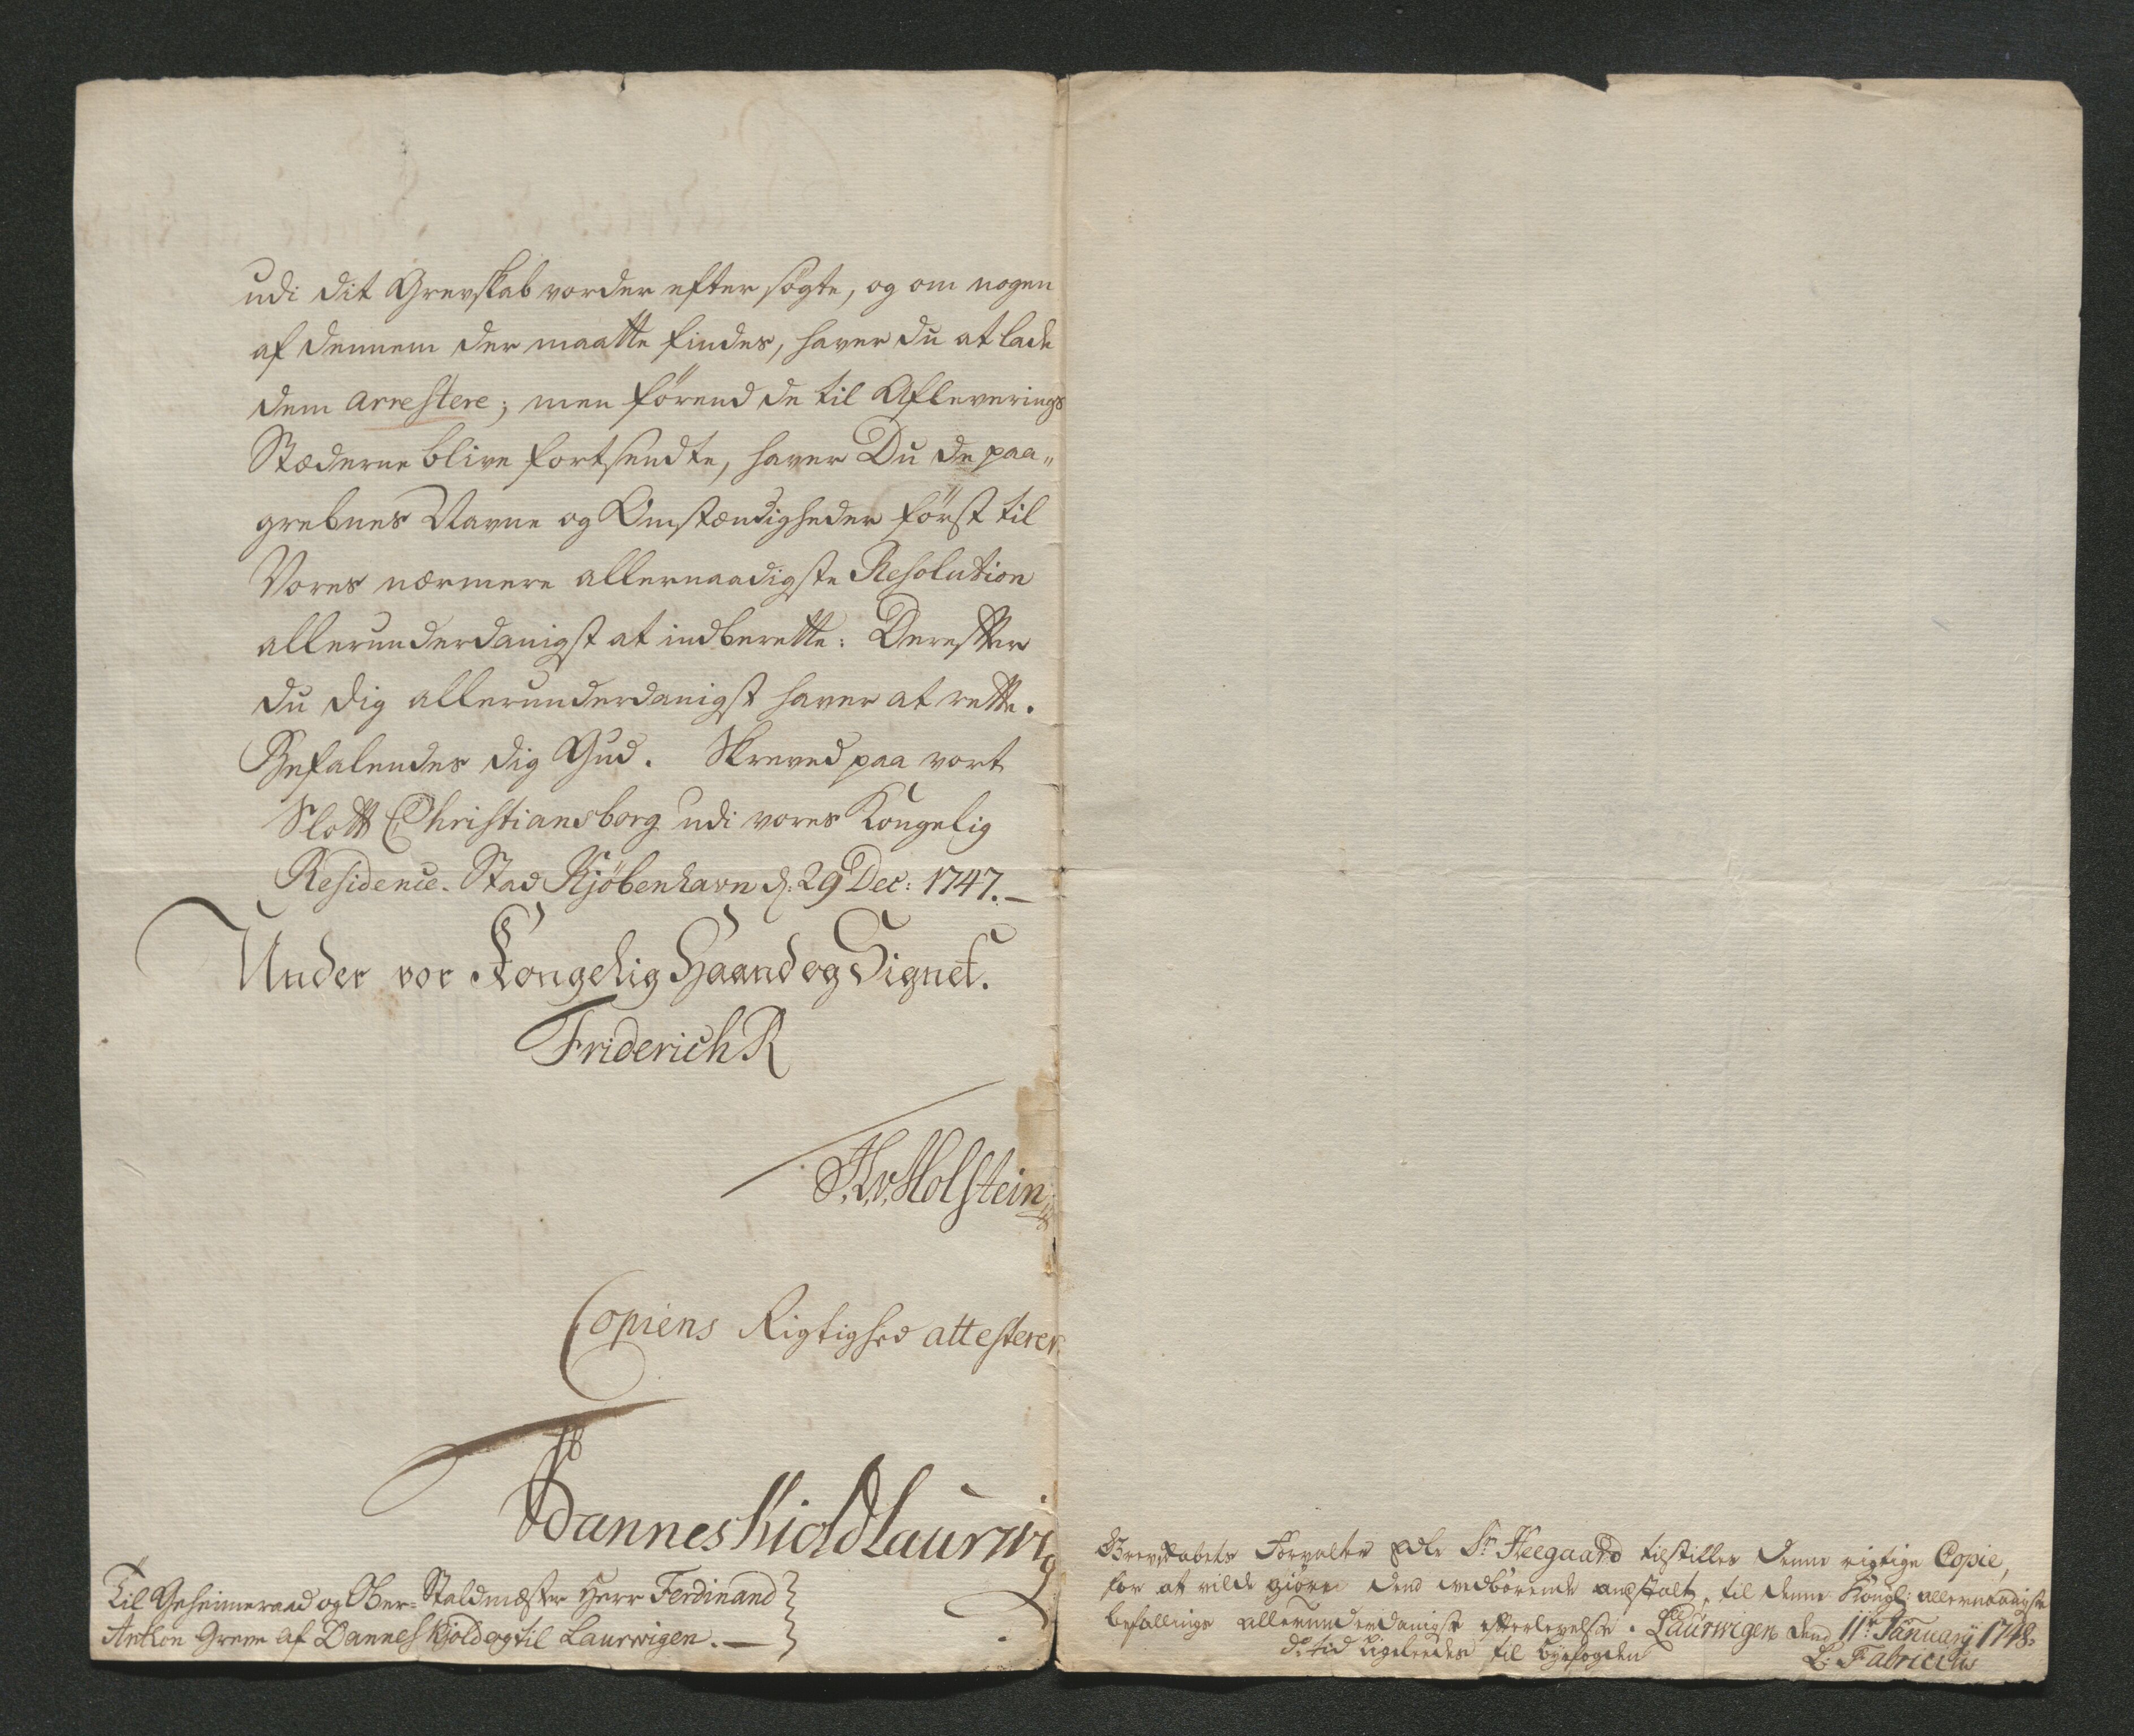 udi dit Grevskab vorder efter søgte, og om nogen
af dennem der maatte findes, haver du at lade
dem arrestere; men förend de til Afleverings
Stæderne blive fortsendte, haver Du de paa„
grebnes Navne og Omstændigheder först til
Vores nærmere allernaadigste Resolution
allerunderdanigst at indberette: Derefter
du dig allerunderdanigst haver at rette.
Befalendes dig Gud. Skreved paa vort
Slott Christiansborg udi vores Kongelig
Residence-Stad Kjöbenhavn d: 29 Dec: 1747.–
Under vor Kongelig Haand og Signet.
Friderich R
J. L. v. Holstein
Copiens Rigtighed attesterer
Danneskiold Laurwig
Til Geheimeraad og Ober-Staldmester Herr Ferdinand
Anthon Greve af Danneskjold og til Laurwigen.–
Grevskabets Forvalter Edle Sr Heegaard tilstilles denne rigtige Copie,
for at vilde giöre dend wedbörende anstalt, til denne Kongl: allernaadigste
befallings allerunderdanigste efterlevelse. Laurwigen dend 11te January 1748.
do tid ligeleedes til byefogden
L: Fabricius